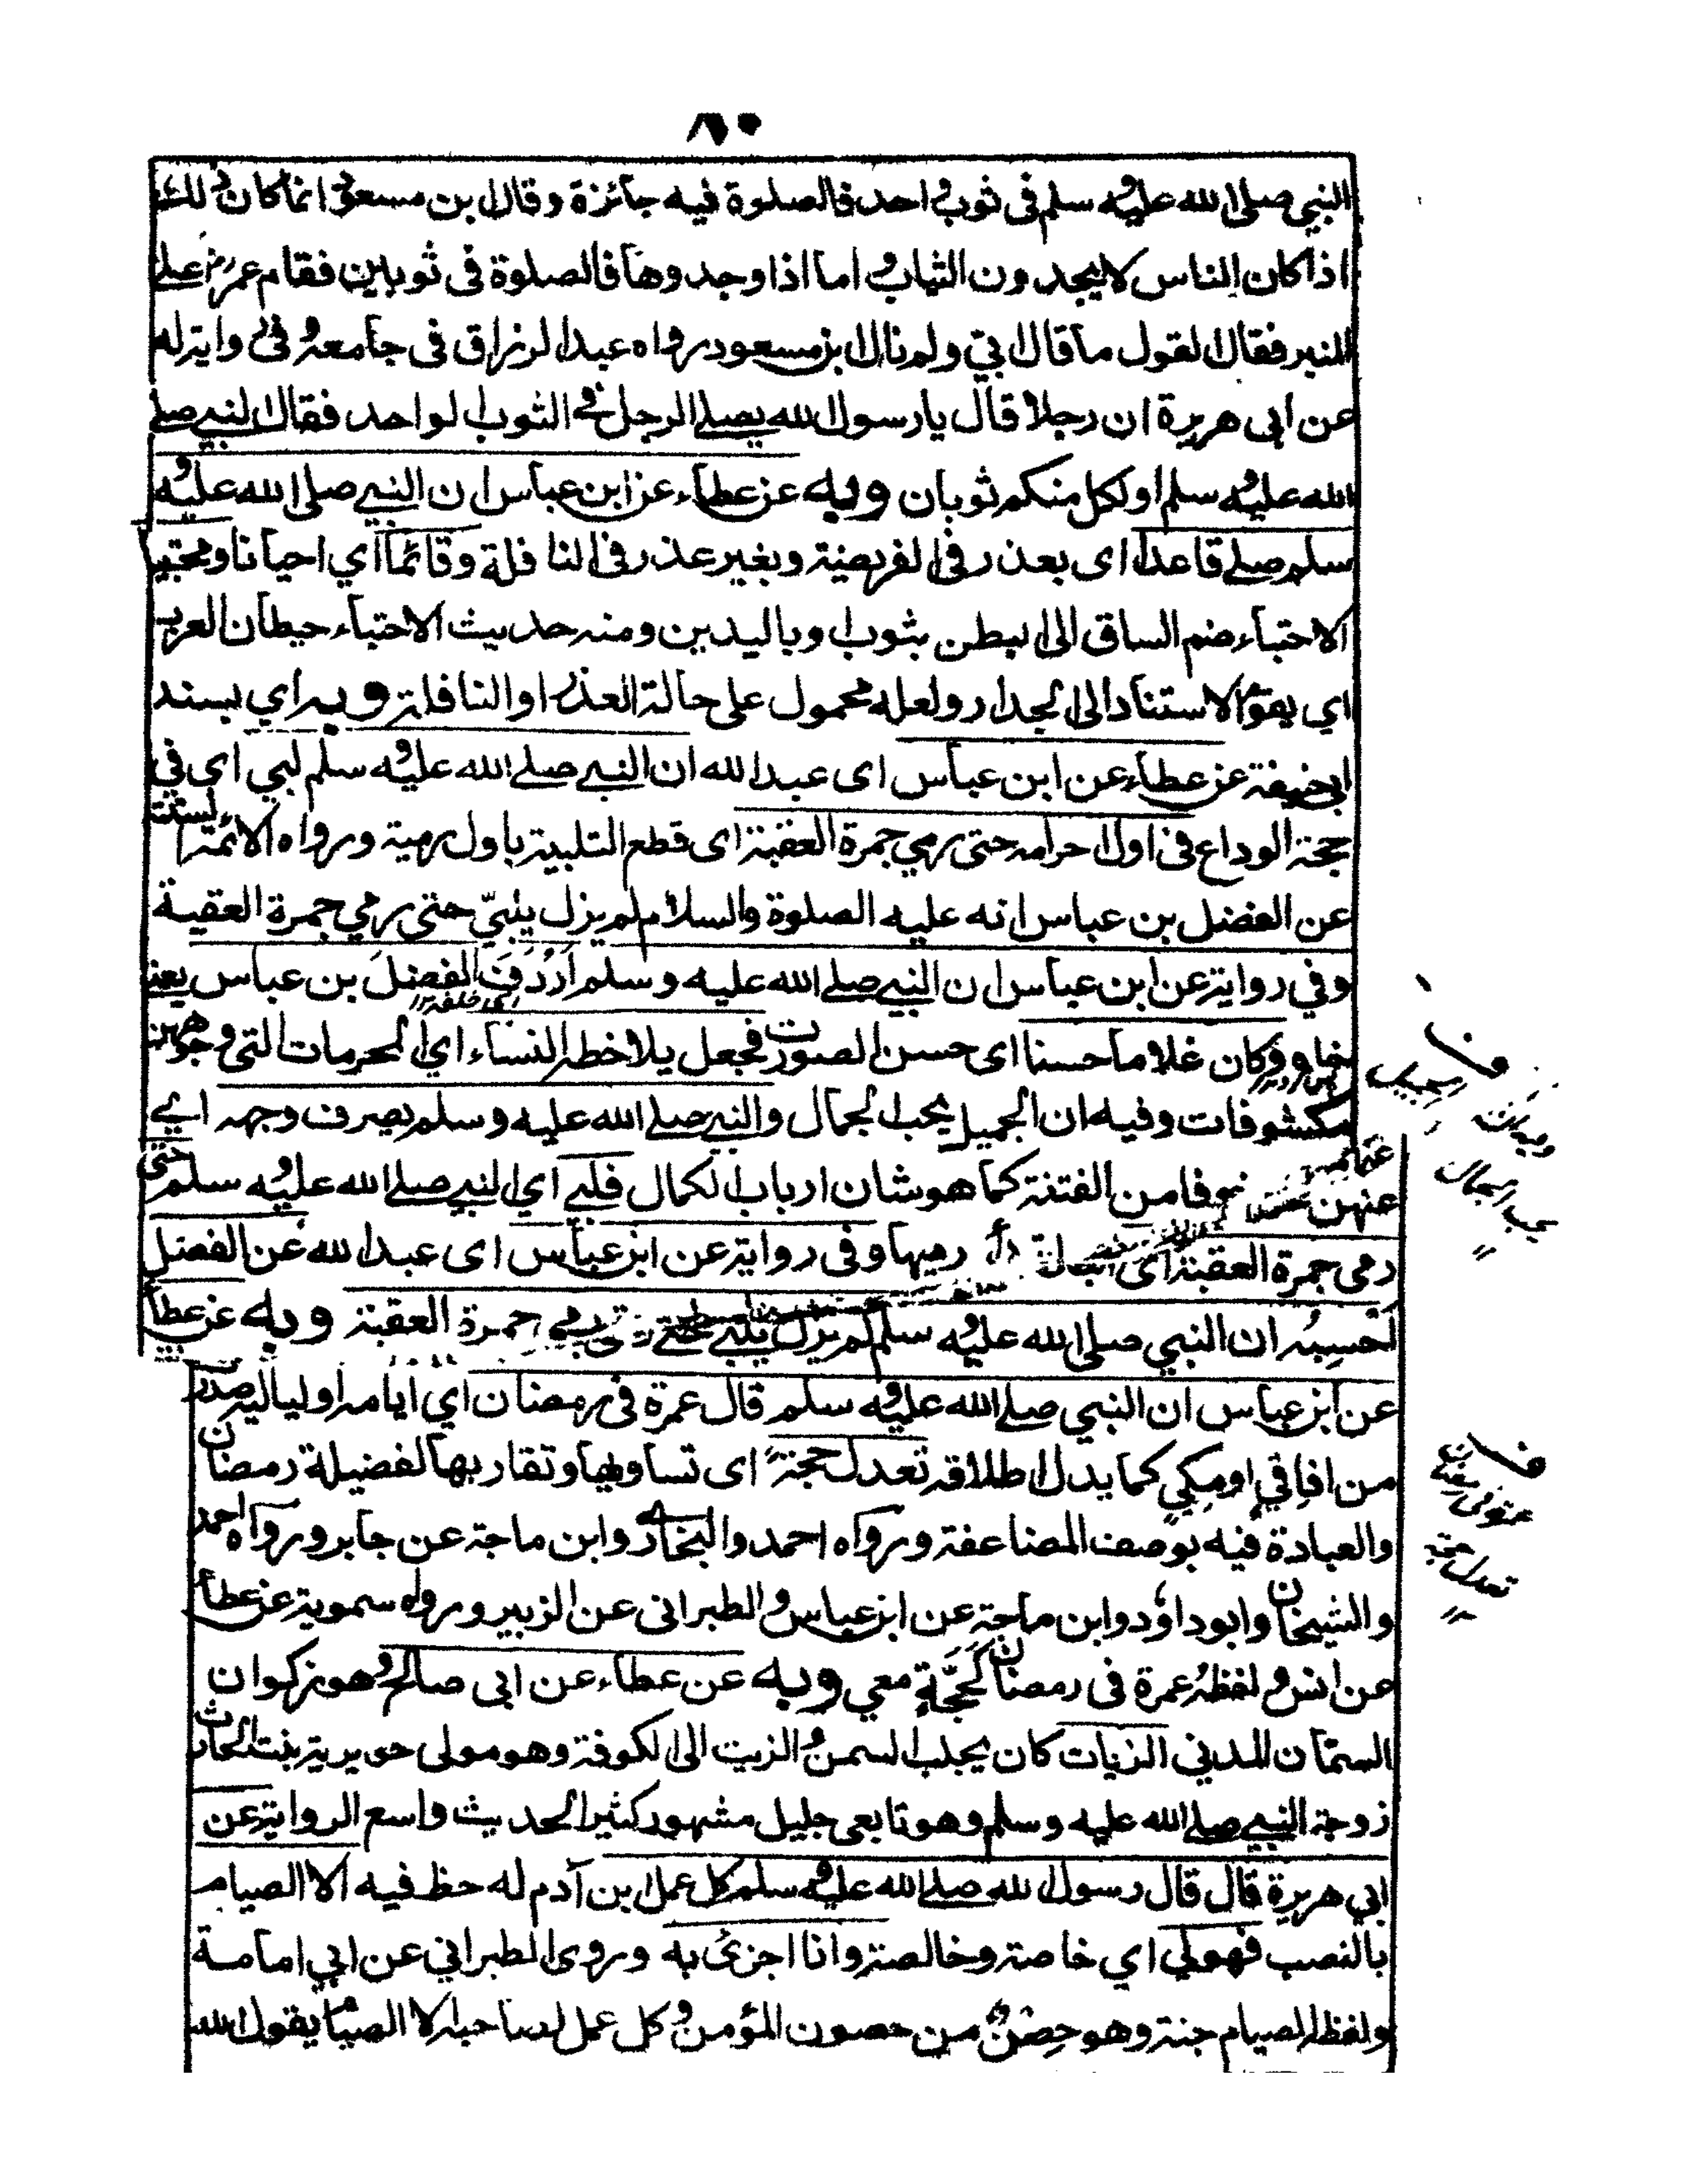 ٨٠
النبي صلى الله عليه وسلم في ثوب واحد فالصلوة فيه جائزة وقال بن مسعود انما كان ذلك
اذا كان الناس لا يجدون الثياب واما اذا وجدوها فالصلوة في ثوبين فقام عمر رض على
المنبر فقال القول ما قال ابي ولم نال ابن مسعود رواه عبد الرزاق في جامعه وفي رواية له
عن ابي هريرة ان رجلا قال يا رسول الله يصلي الرجل في الثوب الواحد فقال النبي صلى
الله عليه وسلم اولكل منكم ثوبان وبه عن عطاء عن ابن عباس ان النبي صلى الله عليه و
سلم صلى قاعدا اى بعذر في الفريضة وبغير عذر في النافلة وقائما اي احيانا ومحتبيا
الاحتباء ضم الساق الى البطن بثوب او باليدين ومنه حديث الاحتباء حيطان العرب
اي يقوم الاستناد الى الجدار ولعله محمول على حالة العذر او النافلة وبه اي بسند
ابي حنيفة عن عطاء عن ابن عباس اى عبد الله ان النبي صلى الله عليه وسلم لبي اي في
حجة الوداع في اول احرامه حتى رمي جمرة العقبة اى قطع التلبية باول رمية ورواه الائمة الستة
عن الفضل بن عباس انه عليه الصلوة والسلام لم يزل يلبيّ حتى رمي جمرة العقبة
وفي رواية عن ابن عباس ان النبي صلى الله عليه وسلم اَرْدَفَ الفضلَ بن عباس يعني
اي خلفه ١٢
وكان غلاما حسنا اى حسن الصورت فجعل يلاحظ النساء اي المحرمات التي وجوههن
مكشوفات وفيه ان الجميل يحب الجمال والنبي صلى الله عليه وسلم يصرف وجهه اي
عنهن خوفا من الفتنة كما هو شان ارباب الكمال فلبي اي النبي صلى الله عليه وسلم حتى
رمى جمرة العقبة اى رميها وفي رواية عن ابن عباس اى عبد الله عن الفضل
اخيه ان النبي صلى الله عليه وسلم لم يزل يلبي حتى رمي جمرة العقبة وبه عن عطاء
عن ابن عباس ان النبي صلى الله عليه وسلم قال عمرة في رمضان اي ايامه او لياليه صدرت
من افاقي او مكي كما يدل اطلاقه تعدل حجة اى تساويها وتقاربها لفضيلة رمضان
والعبادة فيه بوصف المضاعفة ورواه احمد والبخاري وابن ماجة عن جابر ورواه احمد
والشيخان وابو داود وابن ماجة عن ابن عباس والطبراني عن الزبير ورواه سموية عن عطاء
عن انس ولفظه عمرة في رمضان كَحَجَّةٍ معي وبه عن عطاء عن ابي صالح وهو ذكوان
السمّان المدني الزيات كان يجلب السمن والزيت الى الكوفة وهو مولى جويرية بنت الحارث
زوجة النبي صلى الله عليه وسلم وهو تابعي جليل مشهور كثير الحديث واسع الرواية عن
ابي هريرة قال قال رسول الله صلى الله عليه وسلم كل عمل بن آدم له حظ فيه الا الصيام
بالنصب فهو لي اي خاصة وخالصة وانا اجزئ به وروى الطبراني عن ابي امامة
ولفظه الصيام جنة وهو حِصْنٌ من حصون المؤمن وكل عمل لصاحبه الا الصيام يقول الله
يحب الجمال
تعدل حجة